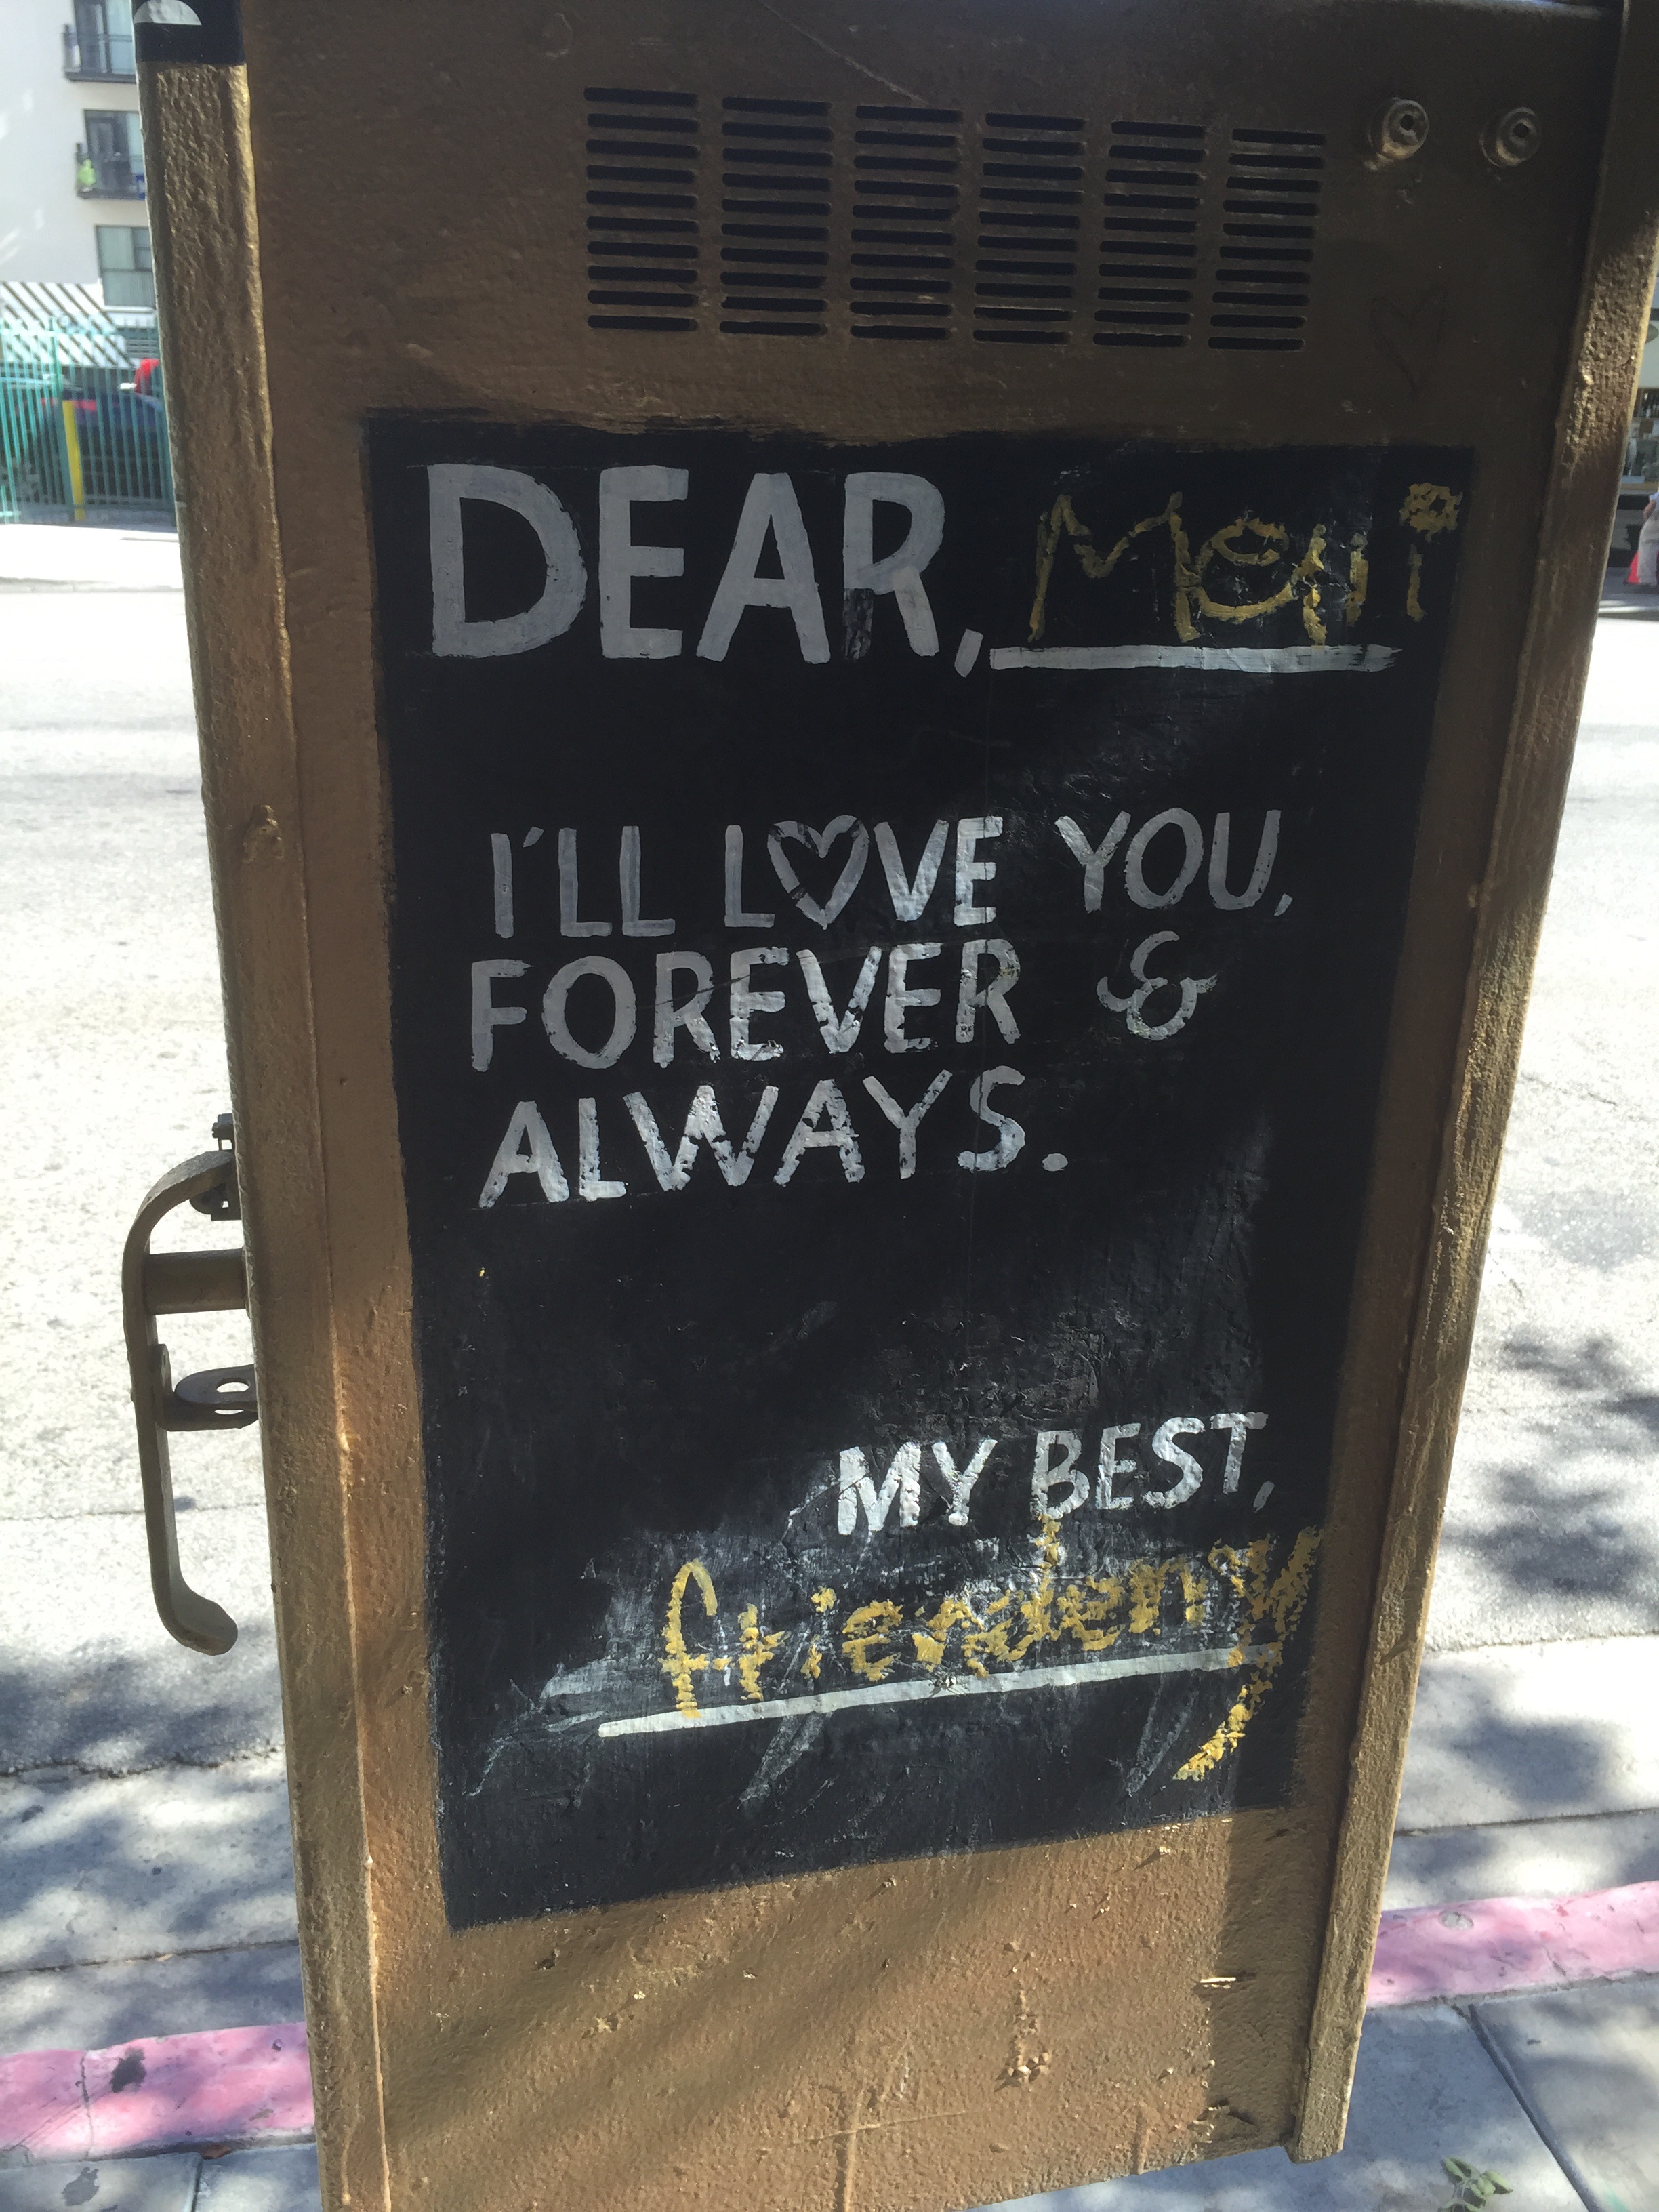 DEAR, Meni
I'LL LOVE YOU,
FOREVER &
ALWAYS.
MY BEST,
friendeny